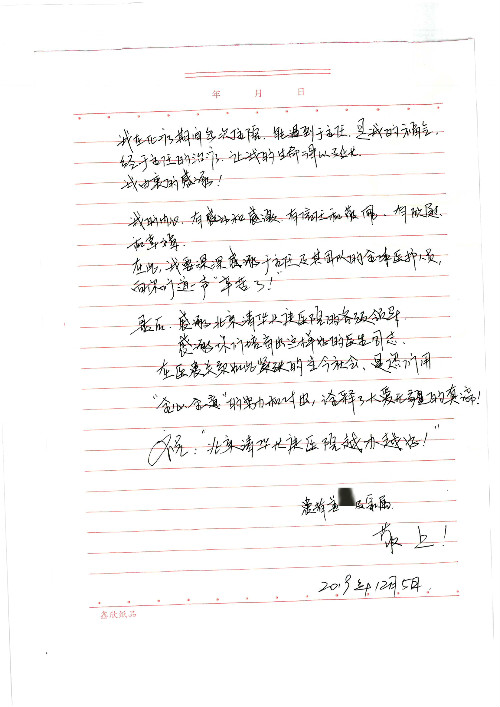 年 月 日
我在化疗期间多次住院，能遇到于主任，是我的福气，
经于主任的治疗，让我的生命得以延长，
我由衷的感谢！
我的内心，有感动和感激，有信任和佩服，有欣慰
和幸福
在此，我要深深感谢于主任及其团队的全体医护人员，
向你们道一声“辛苦了！”
最后，感谢北京清华长庚医院的各级领导
感谢你们培养出这样好的医生同志
在医患关系如此紧张的当今社会，是你们用
“全心全意”的努力和付出，诠释了大爱无疆的真谛！
祝：“北京清华长庚医院越办越好！”
患者 及家属
敬上！
2019年12月5日
鑫欣纸品